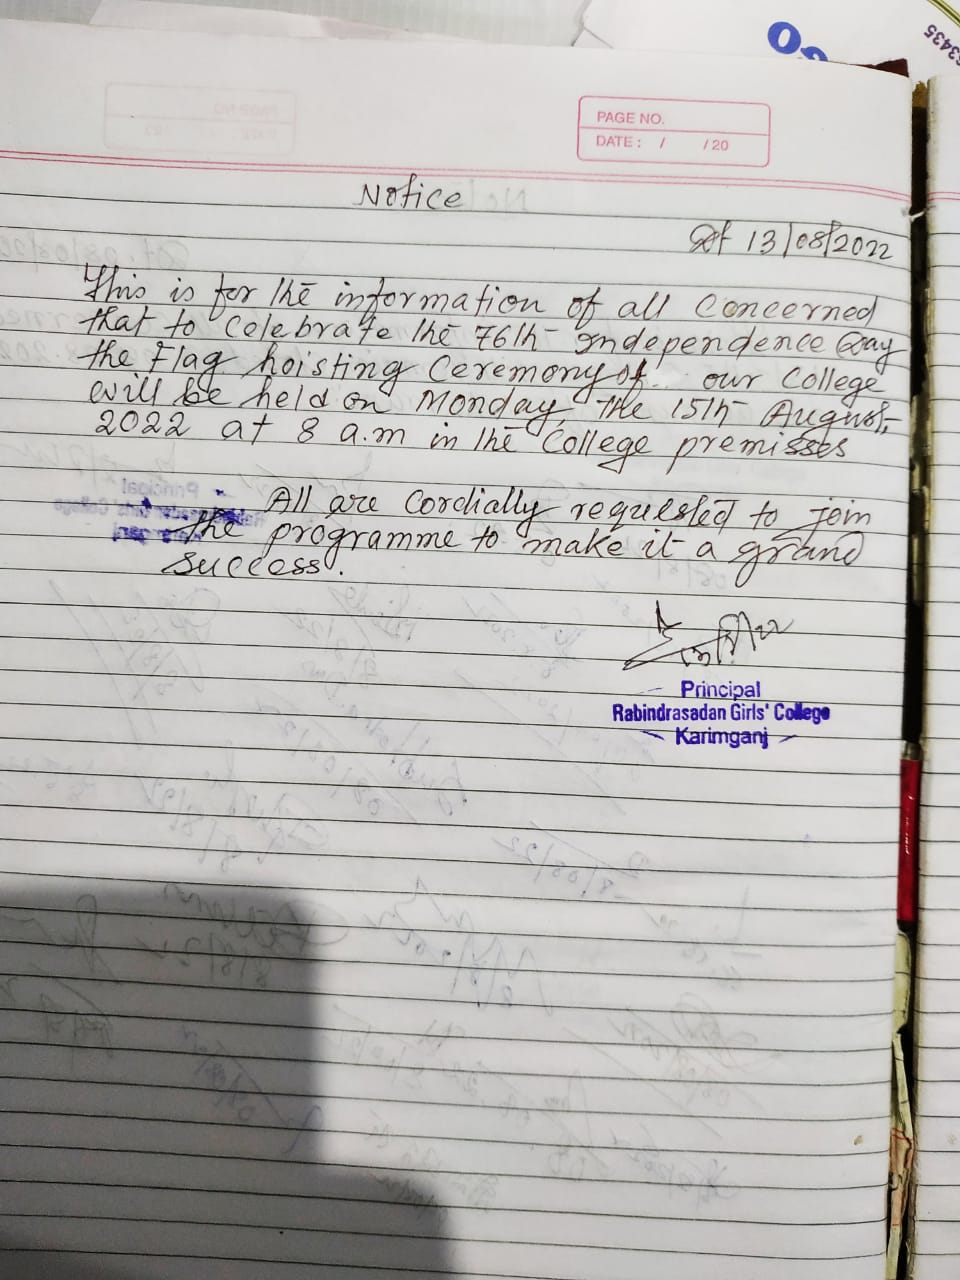 53435
PAGE NO.
DATE : / / 20
Notice
Dt 13/08/2022
This is for the information of all Concerned
that to celebrate the 76th Independence Day
the Flag hoisting Ceremony of our College
will be held on Monday, the 15th August,
2022 at 8 a.m in the College premisses
All are Cordially requested to join
the programme to make it a grand
success.
Principal
Rabindrasadan Girls' College
Karimganj